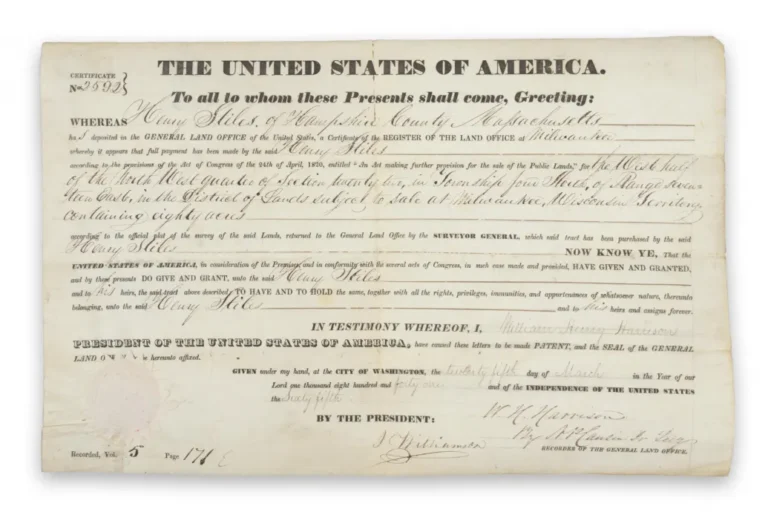 THE UNITED STATES OF AMERICA.
CERTIFICATE
No. 2592
To all to whom these Presents shall come, Greeting:
WHEREAS Henry Stiles, of Hampshire County Massachusetts
ha s deposited in the GENERAL LAND OFFICE of the United States, a Certificate of the REGISTER OF THE LAND OFFICE at Milwaukee
whereby it appears that full payment has been made by the said Henry Stiles
according to the provisions of the Act of Congress of the 24th of April, 1820, entitled "An Act making further provision for the sale of the Public Lands," for the West half
of the North West quarter of Section twenty two, in Township four North, of Range seven-
teen East, in the District of Lands subject to sale at Milwaukee, Wisconsin Territory,
containing eighty acres
according to the official plat of the survey of the said Lands, returned to the General Land Office by the SURVEYOR GENERAL, which said tract has been purchased by the said
Henry Stiles NOW KNOW YE, That the
UNITED STATES OF AMERICA, in consideration of the Premises, and in conformity with the several acts of Congress, in such case made and provided, HAVE GIVEN AND GRANTED,
and by these presents DO GIVE AND GRANT, unto the said Henry Stiles
and to his heirs, the said tract above described: TO HAVE AND TO HOLD the same, together with all the rights, privileges, immunities, and appurtenances of whatsoever nature, thereunto
belonging, unto the said Henry Stiles and to his heirs and assigns forever.
IN TESTIMONY WHEREOF, I, William Henry Harrison
PRESIDENT OF THE UNITED STATES OF AMERICA, have caused these letters to be made PATENT, and the SEAL of the GENERAL
LAND to be hereunto affixed.
GIVEN under my hand, at the CITY OF WASHINGTON, the twenty fifth day of March in the Year of our
Lord one thousand eight hundred and forty one and of the INDEPENDENCE OF THE UNITED STATES
the Sixty fifth
BY THE PRESIDENT: W. H. Harrison
By Secy
J. Williamson RECORDER OF THE GENERAL LAND OFFICE.
Recorded, Vol. 5 Page 171